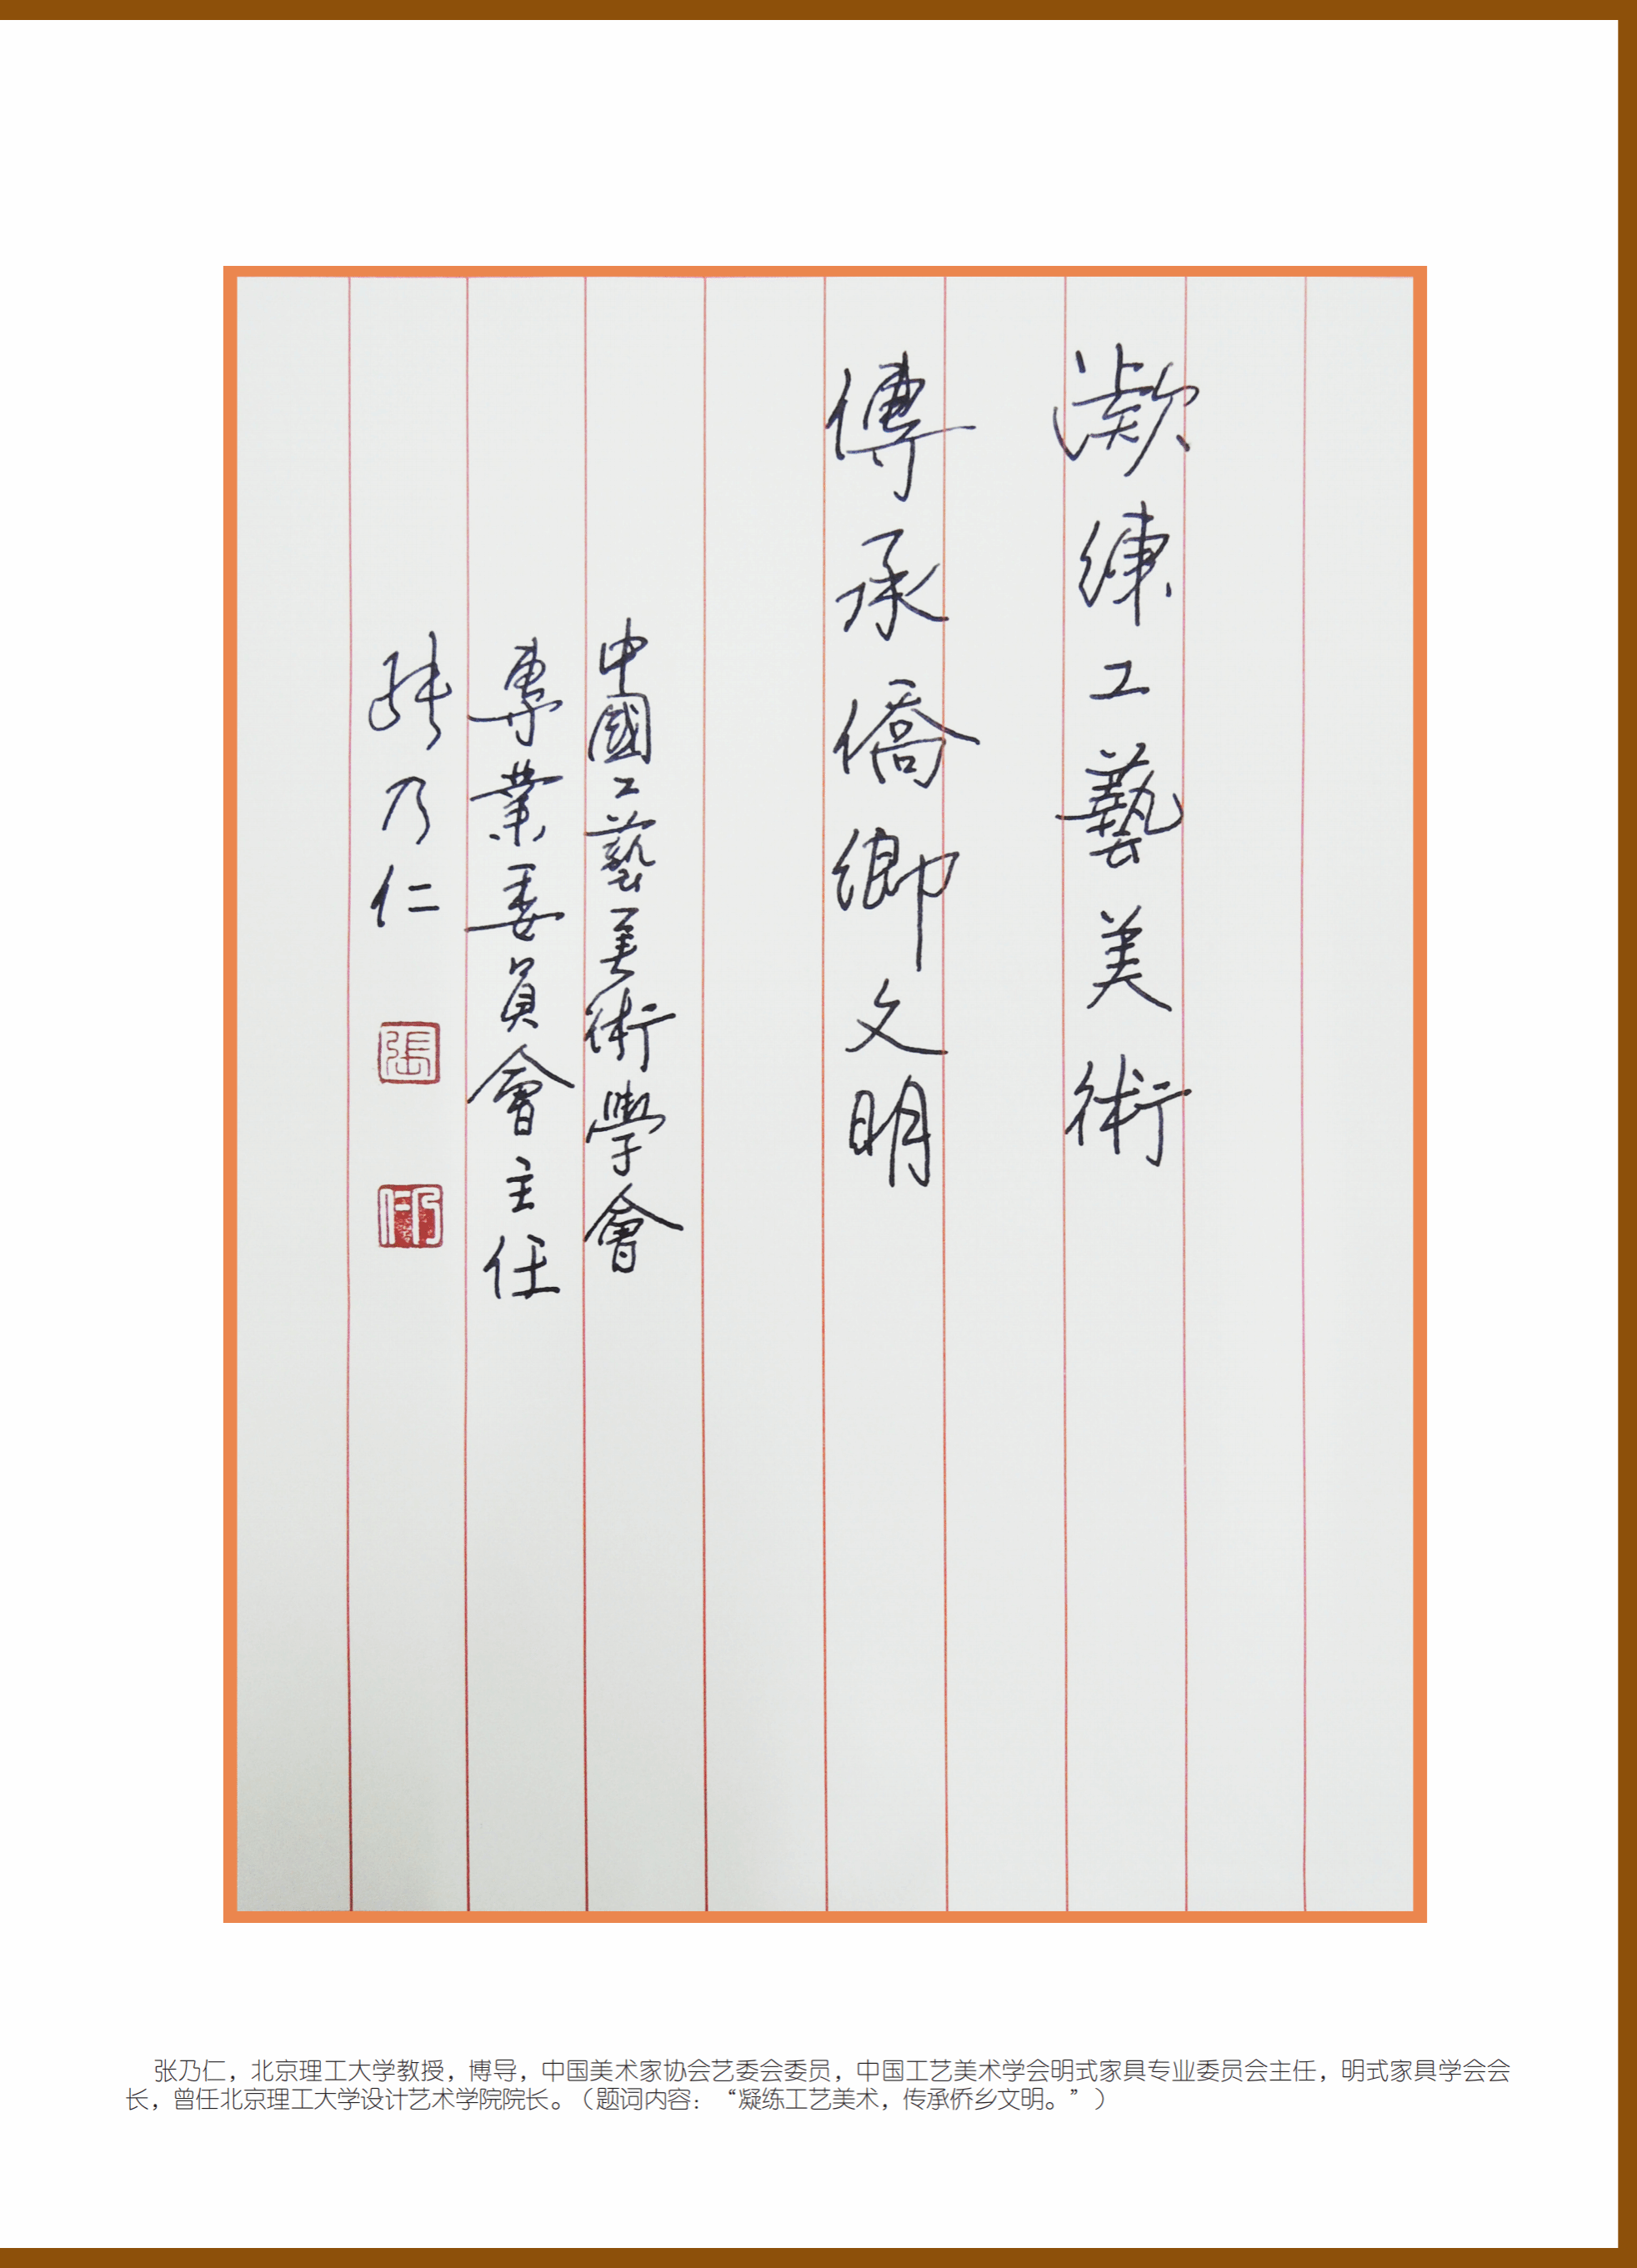 凝練工藝美術
傳承僑鄉文明
中國工藝美術學會
專業委員會主任
張乃仁
張
乃仁
张乃仁，北京理工大学教授，博导，中国美术家协会艺委会委员，中国工艺美术学会明式家具专业委员会主任，明式家具学会会
长，曾任北京理工大学设计艺术学院院长。（题词内容：“凝练工艺美术，传承侨乡文明。”）